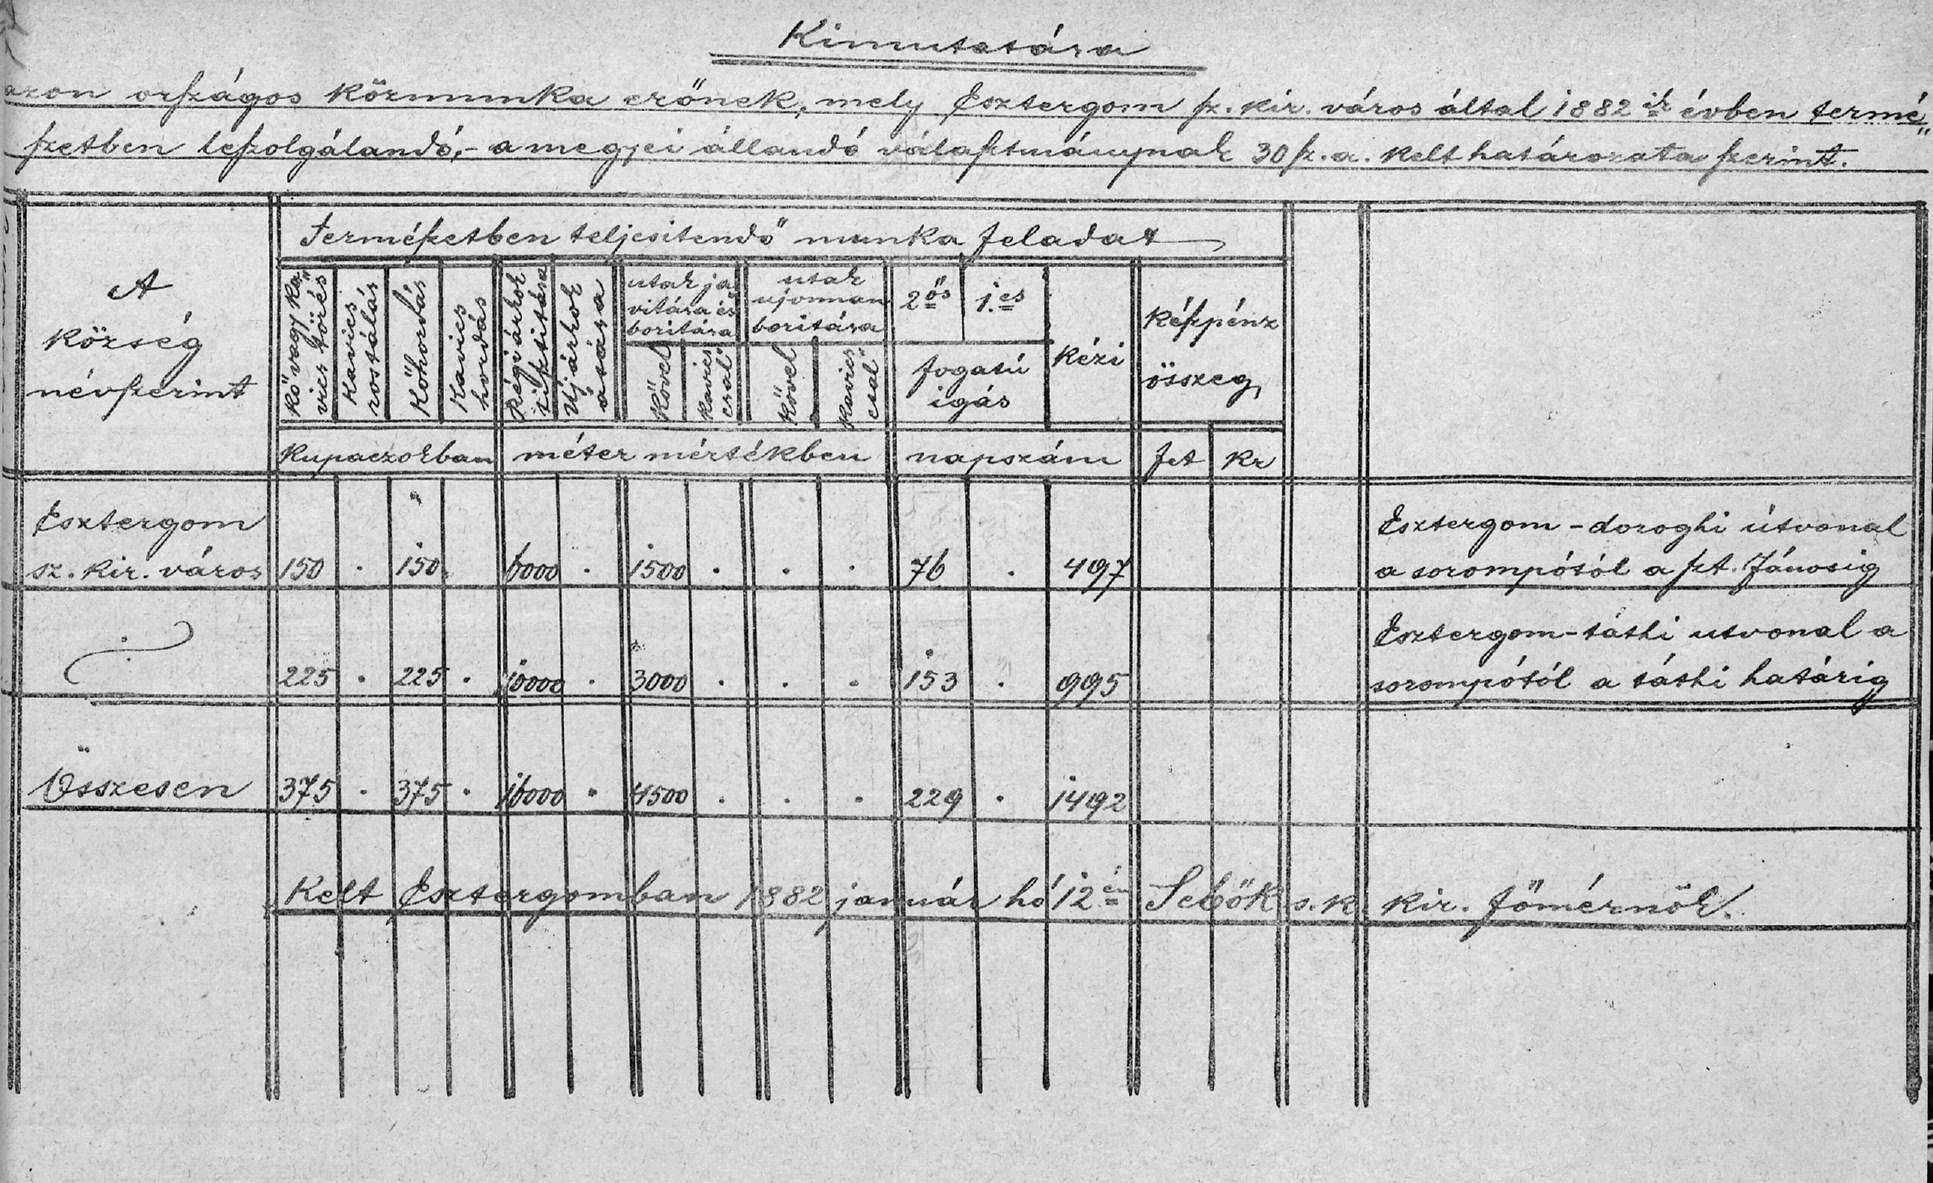 Kimutatása
azon országos közmunka erőnek, mely Esztergom sz. kir. város által 1882 ik évben termé„
szetben leszolgálandó,- a megyei állandó választmánynak 30 sz. a. kelt határozata szerint.
A község névszerint
Természetben teljesitendő munka feladat
Kő vagy ka„ vics törés
Kavics rostálás
Kőhordás
Kavics hordás
Régi árkok tisztitása
Uj árkok ásása
utak ja„ vitása és boritása
utak ujonnan boritása
Kővel
kavics csal
Kővel
kavics csal
2 ős
1. es
fogatú igás
kézi
készpénz összeg
kupaczokban
méter mértékben
napszám
frt
kr
Esztergom
sz. kir. város 150 . 150. 6000 . 1500 . . . 76 . 497
Esztergom - doroghi útvonal
a sorompótól a szt. Jánosig
225 . 225 . 10000 . 3000 . . . 153 . 995
Esztergom-táthi utvonal a
sorompótól a táthi határig
Összesen 375 . 375 . 16000 . 4500 . . . 229 . 1492
Kelt Esztergomban 1882 január hó 12 én Sebők s.k. kir. főmérnök.